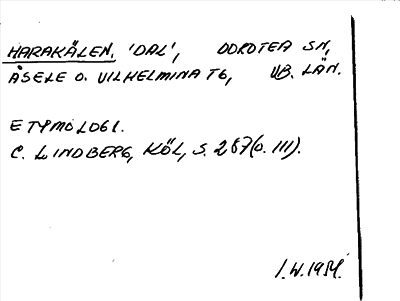 HARAKÄLEN, 'DAL', DOROTEA SN,
ÅSELE O. VILHELMINA TG, VB. LÄN.
ETYMOLOGI.
C. LINDBERG, KÖL, S. 267 (O. III).
I.W. 1951.